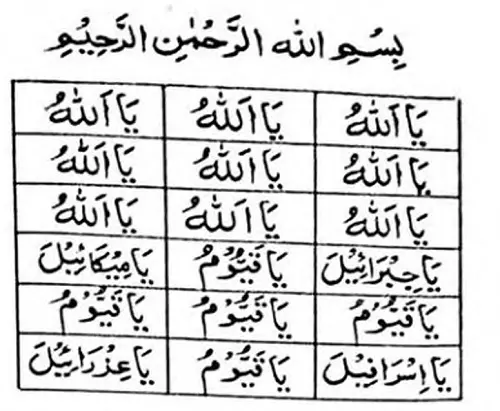 بِسْمِ اللهِ الرَّحْمٰنِ الرَّحِيْمِ
يَا اَللهُ يَا اَللهُ يَا اَللهُ
يَا اَللهُ يَا اَللهُ يَا اَللهُ
يَا اَللهُ يَا اَللهُ يَا اَللهُ
يَا جِبْرَائِيْلَ يَا قَيُّوْمُ يَا مِيْكَائِيْلَ
يَا قَيُّوْمُ يَا قَيُّوْمُ يَا قَيُّوْمُ
يَا اِسْرَافِيْلَ يَا قَيُّوْمُ يَا عِزْرَائِيْلَ